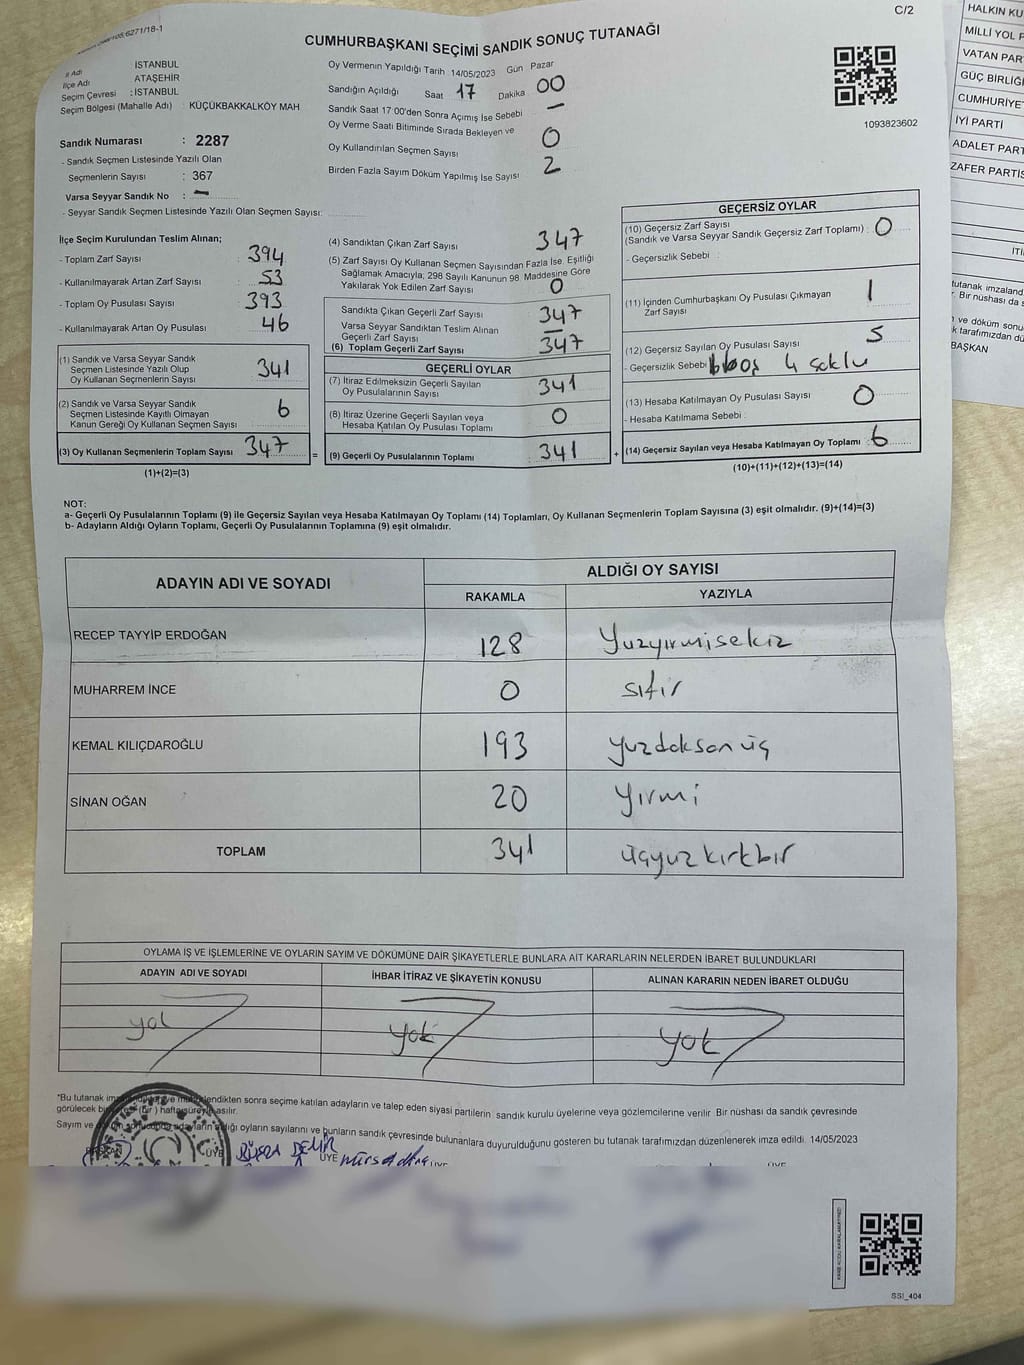 C/2
CUMHURBAŞKANI SEÇİMİ SANDIK SONUÇ TUTANAĞI
İl Adı İSTANBUL
İlçe Adı ATAŞEHİR
Seçim Çevresi : İSTANBUL
Seçim Bölgesi (Mahalle Adı) : KÜÇÜKBAKKALKÖY MAH
Sandık Numarası : 2287
- Sandık Seçmen Listesinde Yazılı Olan
Seçmenlerin Sayısı : 367
Varsa Seyyar Sandık No : —
- Seyyar Sandık Seçmen Listesinde Yazılı Olan Seçmen Sayısı:
Oy Vermenin Yapıldığı Tarih 14/05/2023 Gün Pazar
Sandığın Açıldığı Saat 17 Dakika 00
Sandık Saat 17:00'den Sonra Açımış İse Sebebi —
Oy Verme Saati Bitiminde Sırada Bekleyen ve
Oy Kullandırılan Seçmen Sayısı 0
Birden Fazla Sayım Döküm Yapılmış İse Sayısı 2
1093823602
İlçe Seçim Kurulundan Teslim Alınan;
- Toplam Zarf Sayısı : 394
- Kullanılmayarak Artan Zarf Sayısı : 53
- Toplam Oy Pusulası Sayısı : 393
- Kullanılmayarak Artan Oy Pusulası : 46
(1) Sandık ve Varsa Seyyar Sandık
Seçmen Listesinde Yazılı Olup
Oy Kullanan Seçmenlerin Sayısı 341
(2) Sandık ve Varsa Seyyar Sandık
Seçmen Listesinde Kayıtlı Olmayan
Kanun Gereği Oy Kullanan Seçmen Sayısı 6
(3) Oy Kullanan Seçmenlerin Toplam Sayısı 347 =
(1)+(2)=(3)
(4) Sandıktan Çıkan Zarf Sayısı 347
(5) Zarf Sayısı Oy Kullanan Seçmen Sayısından Fazla İse, Eşitliği
Sağlamak Amacıyla; 298 Sayılı Kanunun 98. Maddesine Göre
Yakılarak Yok Edilen Zarf Sayısı 0
Sandıkta Çıkan Geçerli Zarf Sayısı 347
Varsa Seyyar Sandıktan Teslim Alınan
Geçerli Zarf Sayısı —
(6) Toplam Geçerli Zarf Sayısı 347
GEÇERLİ OYLAR
(7) İtiraz Edilmeksizin Geçerli Sayılan
Oy Pusulalarının Sayısı 341
(8) İtiraz Üzerine Geçerli Sayılan veya
Hesaba Katılan Oy Pusulası Toplamı 0
(9) Geçerli Oy Pusulalarının Toplamı 341 +
GEÇERSİZ OYLAR
(10) Geçersiz Zarf Sayısı
(Sandık ve Varsa Seyyar Sandık Geçersiz Zarf Toplamı) : 0
- Geçersizlik Sebebi :
(11) İçinden Cumhurbaşkanı Oy Pusulası Çıkmayan
Zarf Sayısı 1
(12) Geçersiz Sayılan Oy Pusulası Sayısı 5
- Geçersizlik Sebebi boş 4
(13) Hesaba Katılmayan Oy Pusulası Sayısı 0
- Hesaba Katılmama Sebebi :
(14) Geçersiz Sayılan veya Hesaba Katılmayan Oy Toplamı 6
(10)+(11)+(12)+(13)=(14)
NOT:
a- Geçerli Oy Pusulalarının Toplamı (9) ile Geçersiz Sayılan veya Hesaba Katılmayan Oy Toplamı (14) Toplamları, Oy Kullanan Seçmenlerin Toplam Sayısına (3) eşit olmalıdır. (9)+(14)=(3)
b- Adayların Aldığı Oyların Toplamı, Geçerli Oy Pusulalarının Toplamına (9) eşit olmalıdır.
ADAYIN ADI VE SOYADI ALDIĞI OY SAYISI
RAKAMLA YAZIYLA
RECEP TAYYİP ERDOĞAN 128 Yuzyırmisekiz
MUHARREM İNCE 0 sıfır
KEMAL KILIÇDAROĞLU 193 yuzdoksanüç
SİNAN OĞAN 20 Yırmi
TOPLAM 341 üçyuzkırkbir
OYLAMA İŞ VE İŞLEMLERİNE VE OYLARIN SAYIM VE DÖKÜMÜNE DAİR ŞİKAYETLERLE BUNLARA AİT KARARLARIN NELERDEN İBARET BULUNDUKLARI
ADAYIN ADI VE SOYADI İHBAR İTİRAZ VE ŞİKAYETİN KONUSU ALINAN KARARIN NEDEN İBARET OLDUĞU
yok yok yok
*Bu tutanak ve mühürlendikten sonra seçime katılan adayların ve talep eden siyasi partilerin sandık kurulu üyelerine veya gözlemcilerine verilir. Bir nüshası da sandık çevresinde
görülecek bir (bir) hafta süreyle asılır.
Sayım ve adayların aldığı oyların sayılarını ve bunların sandık çevresinde bulunanlara duyurulduğunu gösteren bu tutanak tarafımızdan düzenlenerek imza edildi. 14/05/2023
BAŞKAN ÜYE ÜYE
SSI_404
HALKIN KU
MİLLİ YOL P
VATAN PAR
GÜÇ BİRLİĞİ
CUMHURİYE
İYİ PARTİ
ADALET PART
ZAFER PARTİS
BAŞKAN